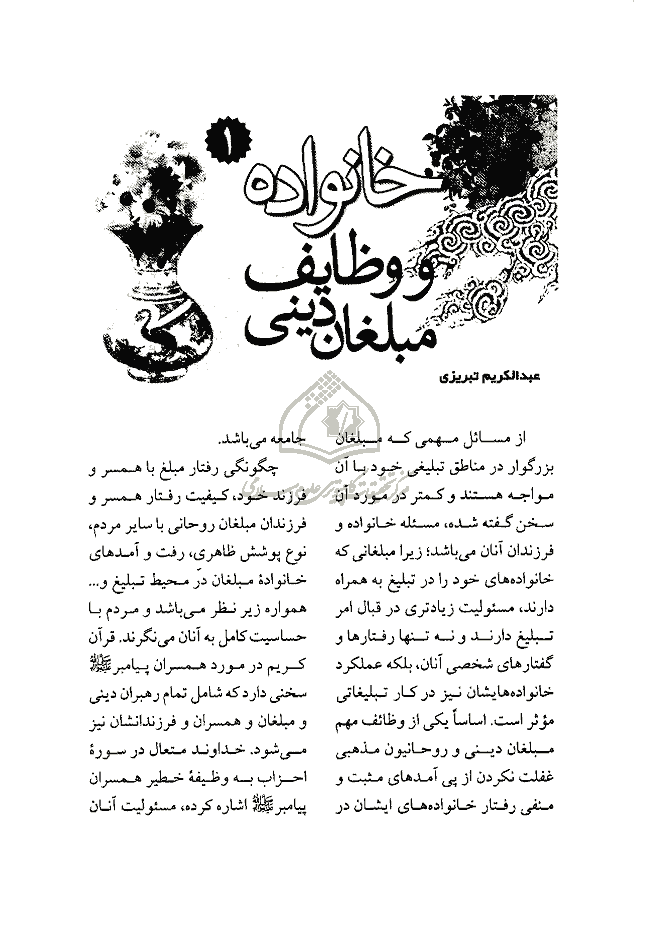 ۱
خانواده
و وظایف
مبلغان دینی
عبدالکریم تبریزی
از مسائل مهمی که مبلغان
بزرگوار در مناطق تبلیغی خود با آن
مواجه هستند و کمتر در مورد آن
سخن گفته شده، مسئله خانواده و
فرزندان آنان می‌باشد؛ زیرا مبلغانی که
خانواده‌های خود را در تبلیغ به همراه
دارند، مسئولیت زیادتری در قبال امر
تبلیغ دارند و نه تنها رفتارها و
گفتارهای شخصی آنان، بلکه عملکرد
خانواده‌هایشان نیز در کار تبلیغاتی
مؤثر است. اساساً یکی از وظائف مهم
مبلغان دینی و روحانیون مذهبی
غفلت نکردن از پی آمدهای مثبت و
منفی رفتار خانواده‌های ایشان در
جامعه می‌باشد.
چگونگی رفتار مبلغ با همسر و
فرزند خود، کیفیت رفتار همسر و
فرزندان مبلغان روحانی با سایر مردم،
نوع پوشش ظاهری، رفت و آمدهای
خانوادهٔ مبلغان در محیط تبلیغ و...
همواره زیر نظر می‌باشد و مردم با
حساسیت کامل به آنان می‌نگرند. قرآن
کریم در مورد همسران پیامبر ﷺ
سخنی دارد که شامل تمام رهبران دینی
و مبلغان و همسران و فرزندانشان نیز
می‌شود. خداوند متعال در سورهٔ
احزاب به وظیفهٔ خطیر همسران
پیامبر ﷺ اشاره کرده، مسئولیت آنان